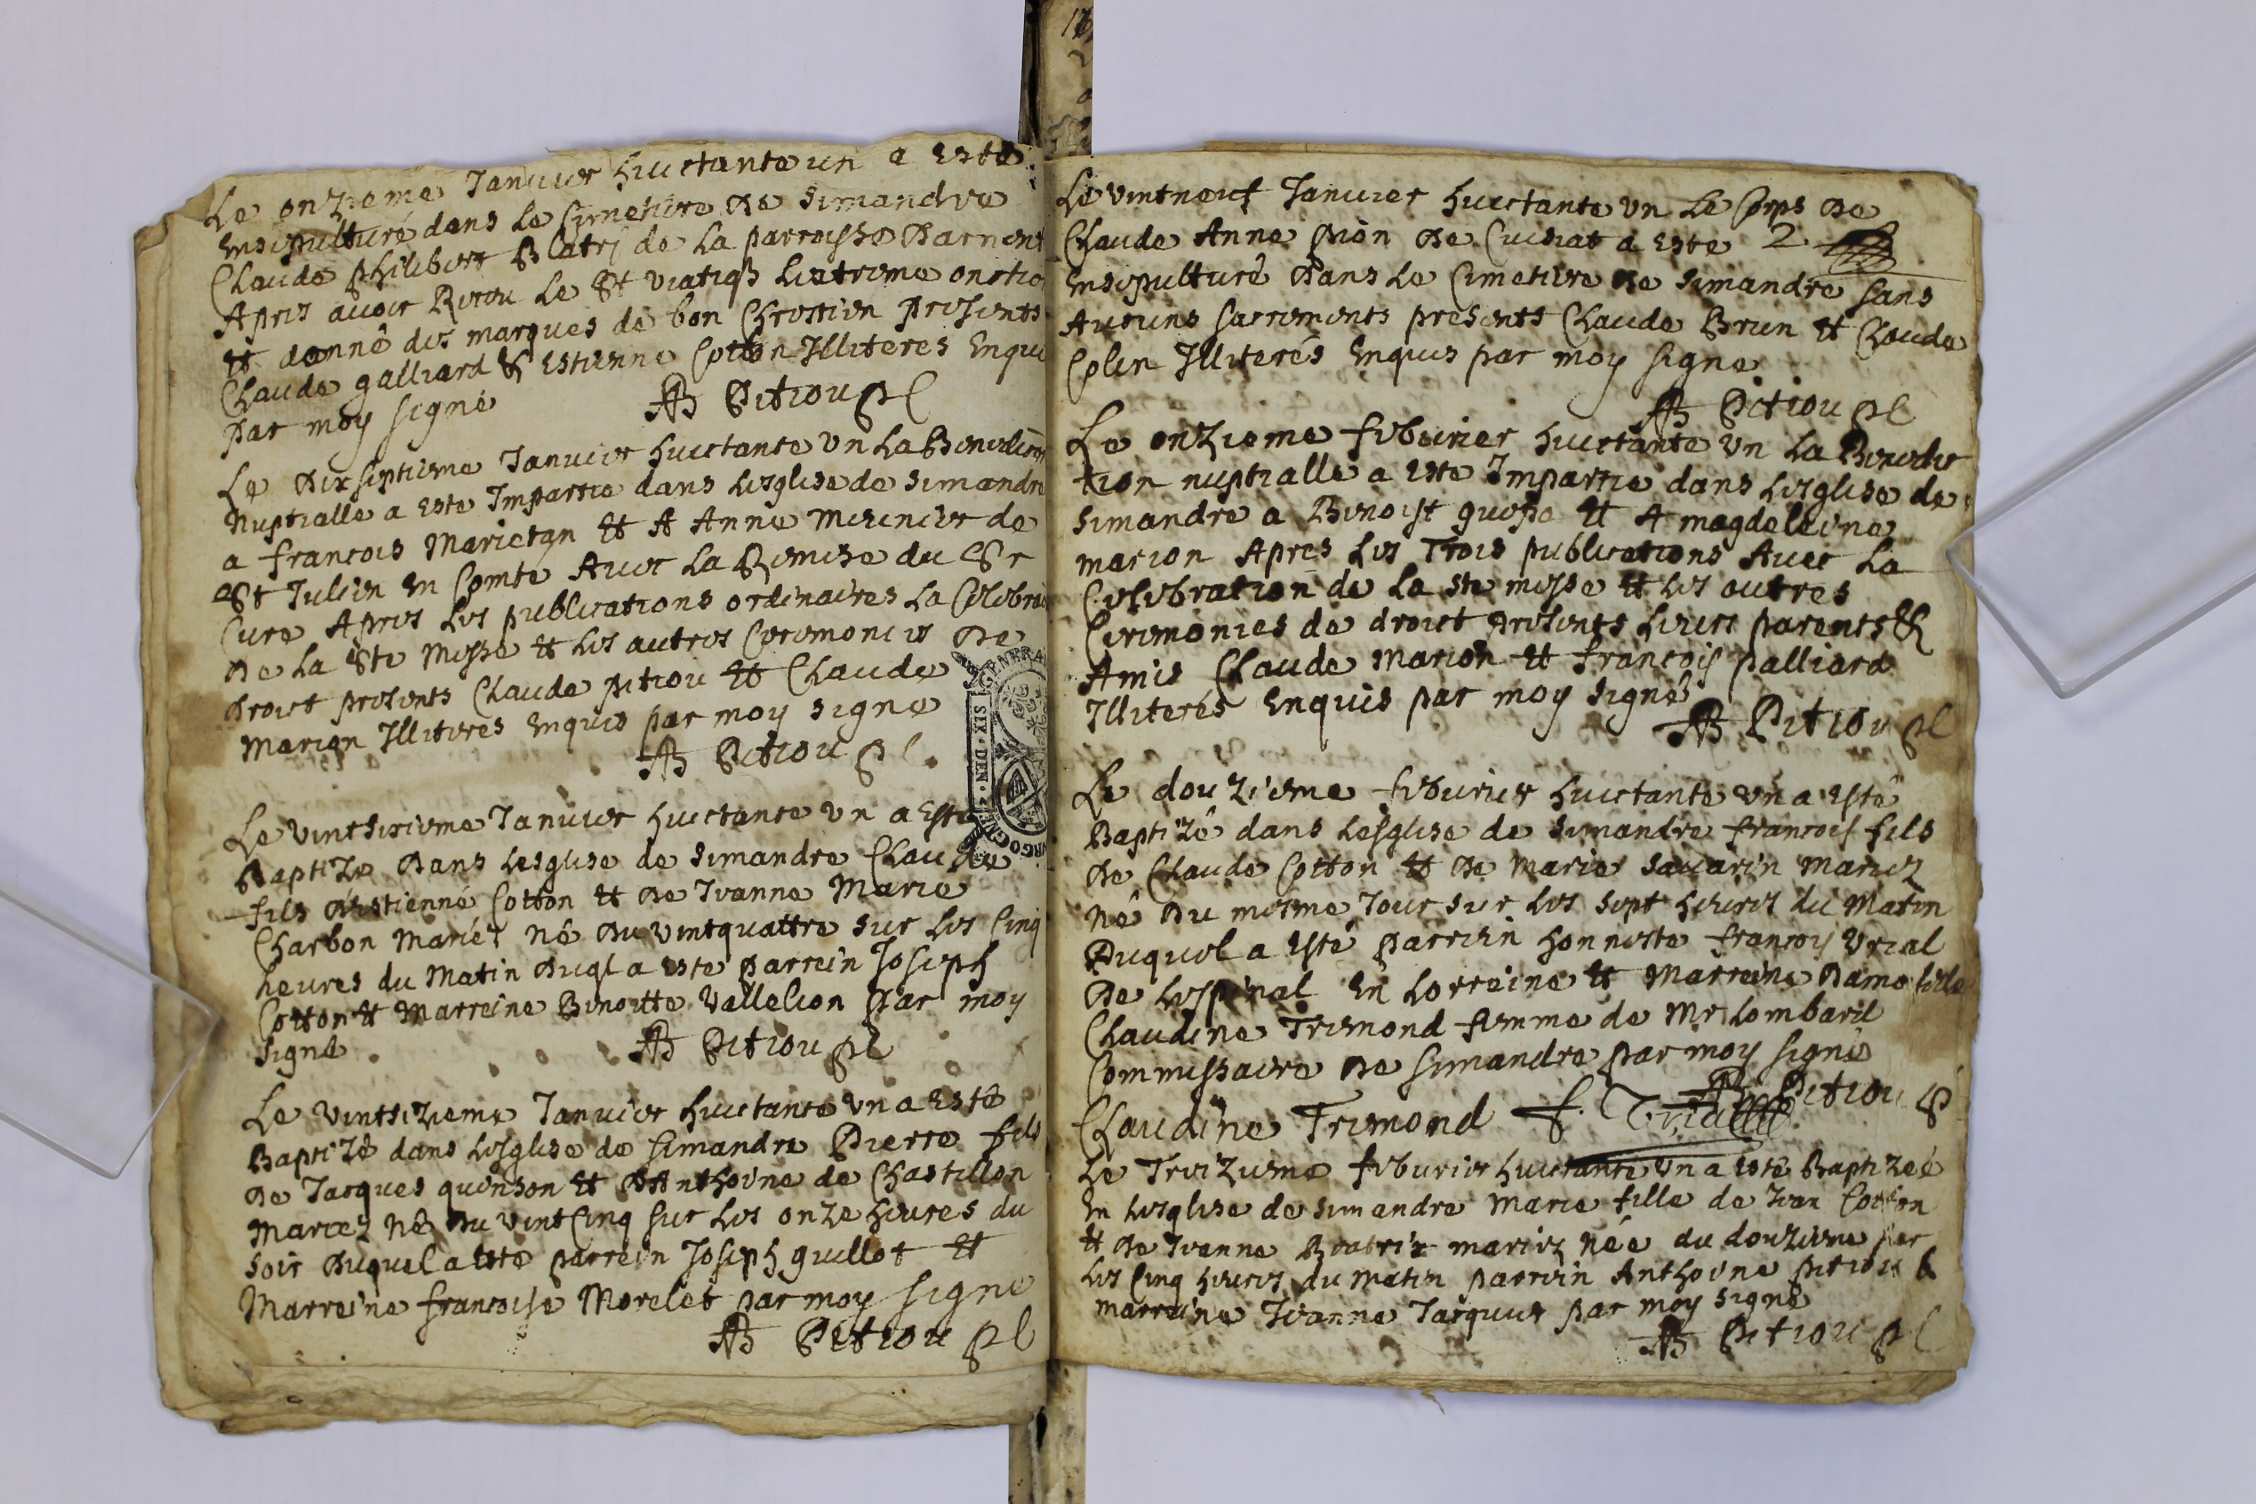 Le onzieme Januier huictante un a esté
Ensepulturé dans le Cimetiere de Simandre
Claude philibert Blatrj de la parroisse Darnens
Apres auoir Receu le St viatiqs lextreme onctio
et donné des marques de bon Chrestien presents
Claude galliard & Estienne Cotton Illiteres Enquis
par moy signé
AB Petiou pl
Le dixseptieme Januier huictante un la Benediction
Nuptialle a esté Impartie dans lesglise de simandre
a francois Marietan et A Anne meunier de
St Julien en Comté Auec la Remise du Sr
Cure Apres les publications ordinaires la Celebra
de la Ste Messe et les autres Ceremonies de
droict presents Claude petiou et Claude
Marion Illiteres Enquis par moy signé
AB Petiou pl.
Le vintsixieme Januier huictante un a esté
Baptizé dans lesglise de simandre Claude
fils destienne Cotton et de Jeanne Marie
Charbon mariez né du vintquattre sur les Cinq
heures du Matin duql a este parrein Joseph
Cotton et Marreine Benoitte Vallelion par moy
signé
AB Petiou pl
Le vintsizieme Januier huictante un a esté
Baptizé dans lesglise de simandre Pierre fils
de Jacques quinson et dAnthoine de Chastillon
Mariez né du vintcinq sur les onze heures du
soir duquel a este parrein Joseph guillot et
Marreine francoise Morelet par moy signé
AB Petiou pl
Le vintneuf Januier huictante un le Corps de
Claude Anne pion de Cuisiat a este 2
Ensepulturé dans le Cimetiere de Simandre sans
Aucuns sacrements presents Claude Brun et Claude
Colin Illiterés Enquis par moy signé
AB Petiou pl
Le onzieme feburier huictante un la Benedic
tion nuptialle a este Impartie dans lesglise de
simandre a Benoist et A magdeleine
marion Apres les Trois publications Auec la
Celebration de la ste messe et les autres
Ceremonies de droict presents leurs parents &
Amis Claude Marion et francois palliard
Illiterés Enquis par moy signé
AB Petiou pl
Le douzieme feburier huictante un a esté
Baptizé dans lesglise de simandre francois fils
de Claude Cotton et de Marie sauarin Mariez
né du mesme Jour sur les sept heures du Matin
duquel a esté parrein honneste francois vrial
de lespinal En Lorreine et Marreine dame
Claudine Tremond femme de Mr Lombard
Commissaire de simandre par moy signé
AB Petiou p
Claudine Tremond f. Vrial
Le Treizieme feburier huictante un a esté Baptizeé
en lesglise de simandre Marie fille de Jean Cotton
et de Jeanne Beatrix mariez neé du douzieme sur
les Cinq heures du matin parrein Anthoine petiou &
marreine Jeanne Jacquier par moy signé
AB Petiou pl